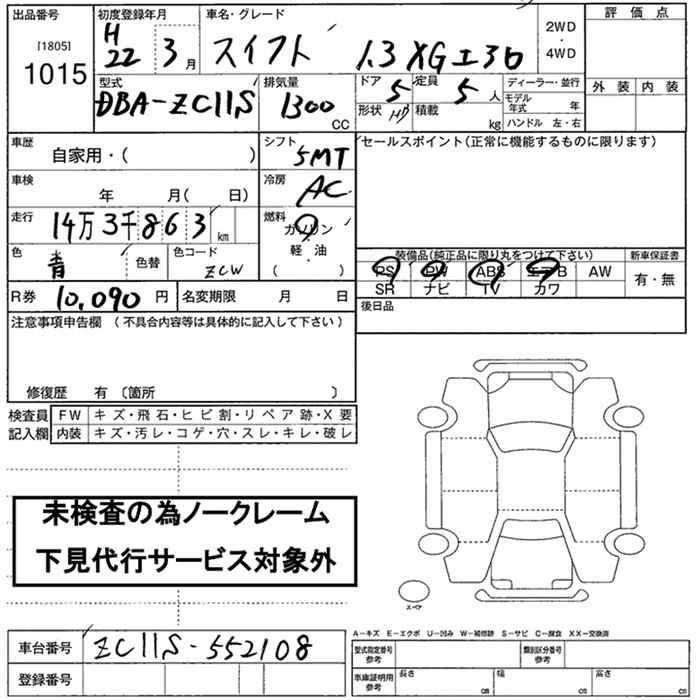 出品番号 初度登録年月 車名・グレード 評価点
[1805] 1015 H22 3月 スイフト 1.3 XGエ36 2WD・4WD
外装 内装
型式 排気量 ドア 定員 ディーラー・並行
DBA-ZC11S 1300 CC 5 5人 モデル年式 年
形状 HB 積載 kg ハンドル 左・右
車歴 シフト セールスポイント(正常に機能するものに限ります)
自家用・( ) 5MT
車検 冷房
年 月( 日) AC
走行 燃料
14万3千863 km ガソリン
軽・油
・
( )
色 色替 色コード
青 ZCW
装備品(純正品に限り丸をつけて下さい) 新車保証書
PS PW ABS エアB AW 有・無
SR ナビ TV カワ
R券 10,090 円 名変期限 月 日
後日品
注意事項申告欄 (不具合内容等は具体的に記入して下さい)
修復歴 有 〔箇所 〕
検査員 FW キズ・飛石・ヒビ割・リペア跡・X要
記入欄 内装 キズ・汚レ・コゲ・穴・スレ・キレ・破レ
未検査の為ノークレーム
下見代行サービス対象外
スペア
A-キズ E-エクボ U-凹み W-補修跡 S-サビ C-腐食 XX-交換済
車台番号 ZC11S-552108
型式指定番号 参考 類別区分番号 参考
登録番号
車庫証明用 参考 長さ cm 幅 cm 高さ cm